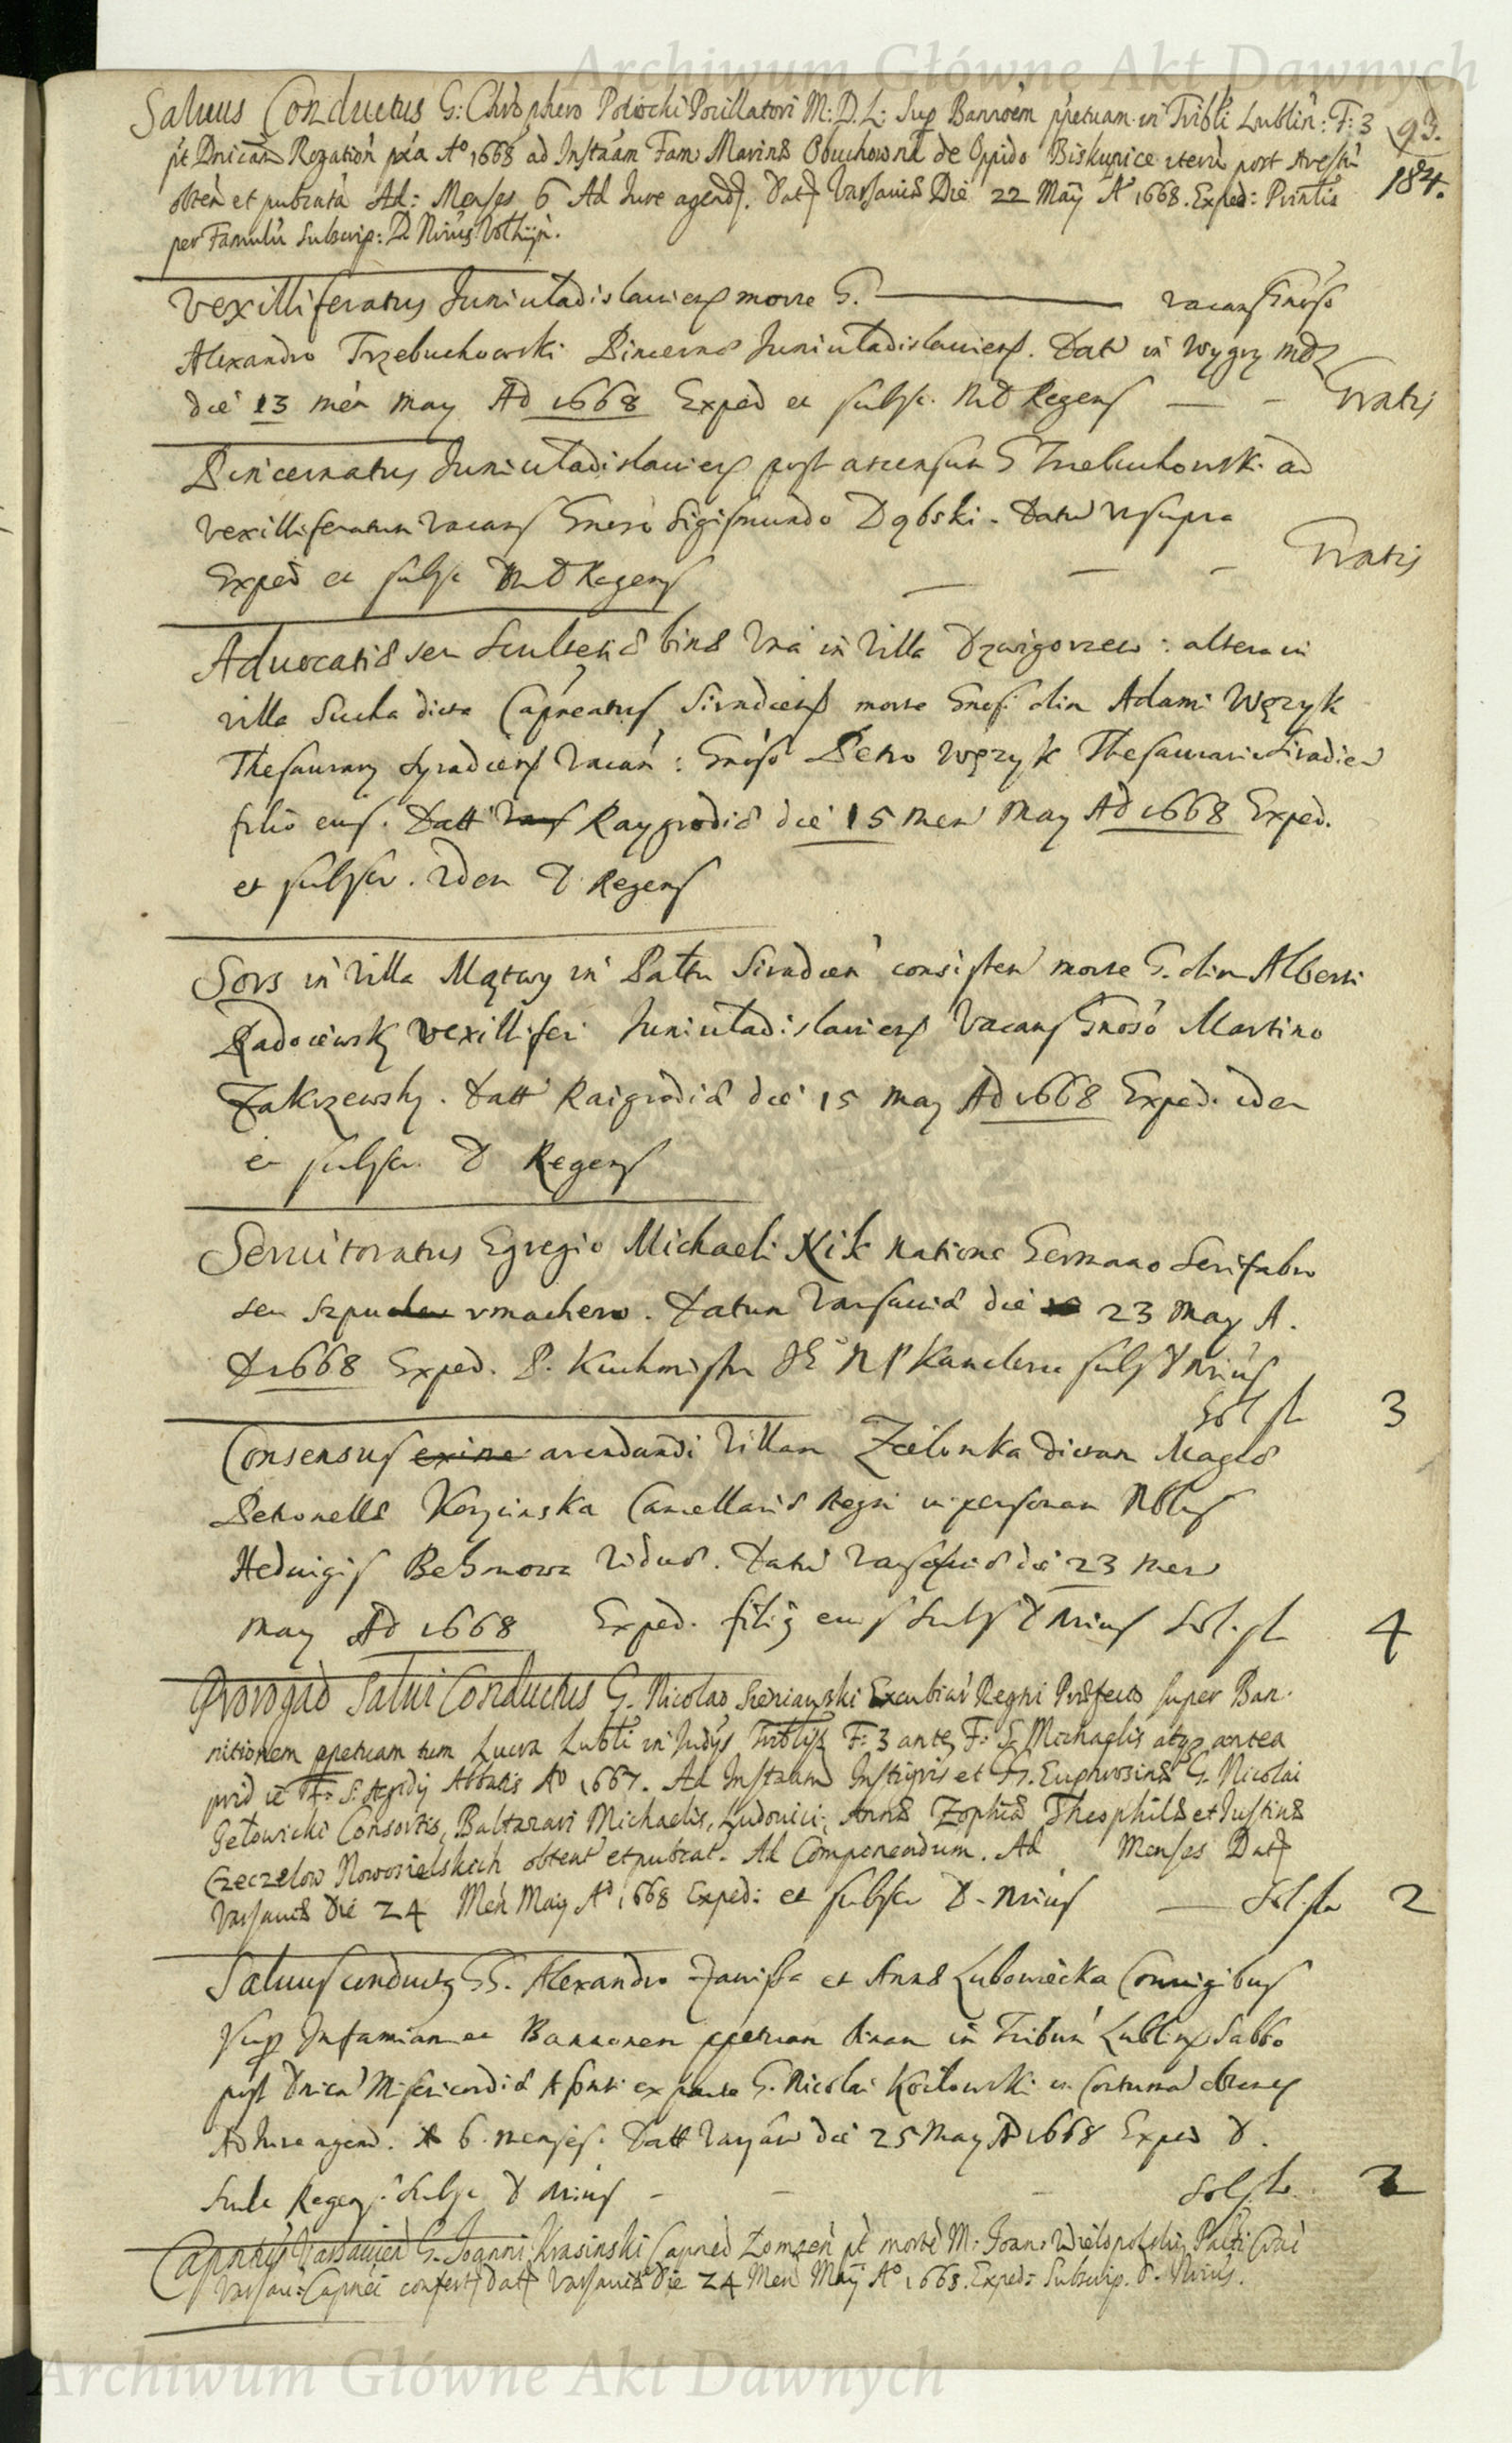 Archiwum Główne Akt Dawnych
Salvus Conductus G: Chrõphero Potocki Pocillatori M: D. L: Sup Bannoem ppetuam in Tribli Lublin: F: 3
93.
pt Dnicam Rogation pxa Aº 1668 ad Instãam Fam Marinæ Obuchowna de Oppido Biskupice iterũ post Arestũ
184.
obten et pubrata Ad: Menses 6 Ad Iure agend. Dat Varsaviæ Die 22 Maij Aº 1668. Exped:
per Famulũ Subscrip: D Nrius Volhijn.
Vexilliferatus Juniuladislauien morte G. vacans Gnoso
Alexandro Trzebuchowski Pincernæ Juniuladislauien. Datũ in Wygry
die 13 men May AD 1668 Exped et subsc. MD Regens Gratis
Pincernatus Juniuladislauien post ascensum G Trzebuchowski ad
Vexilliferatum vacans Gneso Sigismundo Dąbski. Datũ ut supra
Exped et subsc MD Regens Gratis
Advocatiæ seu Scultetiæ binæ Una in Villa Dzwigorzew: altera in
villa Sucha dicta Capneatus Siradiens morte Gnosi olim Adami Wężyk
Thesaurarij Syradiens vacan: Gnoso Petro Wężyk Thesaurario Siradien
filio eius. Datt Raygrodiæ die 15 men May AD 1668 Exped.
et subscr. Idem D Regens
Sors in Villa Mątwy in Pattu Siradien consisten morte G. olim Alberti
Radociewsky Vexilliferi Juniuladislauiens Vacans Gnoso Martino
Zakrzewsky. Datt Raigrodiæ die 15 May AD 1668 Exped. idem
et subscr. D Regens
Servitoratus Egregio Michaeli Kik natione Germano Serifabro
seu szpu rmachero. Datum Varsaviæ die 23 May A.
D 1668 Exped. P. Kuchmistr Kanclerza subs D Nrius
Sol fl 3
Consensus arendandi Villam Zielonka dictam Magcæ
Petronellæ Korycinska Cancellariæ Regni in personam Nblis
Hedvigis Behmowa Viduæ. Datũ Varsaviæ die 23 men
May AD 1668 Exped. filij eius Subs D Nrius Sol. fl 4
Prorogão Salvi Conductus G. Nicolao Sieniawski Excubiar Regni Præfecto super Ban-
nitionem ppetuam tum Lucra Lubli in Iudijs Triblis F: 3 ante F: S. Michaelis atq antea
prid ie F: S. Aegidij Abbatis Aº 1667. Ad Instãam Instigris et G. Euphrosinæ G. Nicolai
Getowicki Consortis, Baltazari Michaelis, Ludovici, Annæ Zophiæ Theophilæ et Iustinæ
Czeczelow Nowosielskich obtent et pubrat. Ad Componendum. Ad Menses Dat
Varsaviæ Die 24 Men Maij Aº 1668 Exped: et subscr D. Nrius Sol. fl 2
Salvus conductus GG. Alexandro Zawisza et Annæ Lubowiecka Coniugibus
sup Infamiam et Bannonem ppetuam binam in Tribun Lublin Sabbo
post Dnicam Misericordiæ ex parte G. Nicolai Koitowski in Contuma obtenes
Ad Iure agend. A 6. menses. Datt Varsav die 25 May AD 1668 Exped D.
Regens. Subsc D Nrius Sol fl. 2
Capneus Varsavien G. Ioanni Krasinski Capneo Lomzen pt morte M. Ioan. Wielopolski
Varsav: Capnei confert dat Varsaviæ Die 24 Men Maij Aº 1668. Exped: Subscrip. D. Nrius.
Archiwum Główne Akt Dawnych